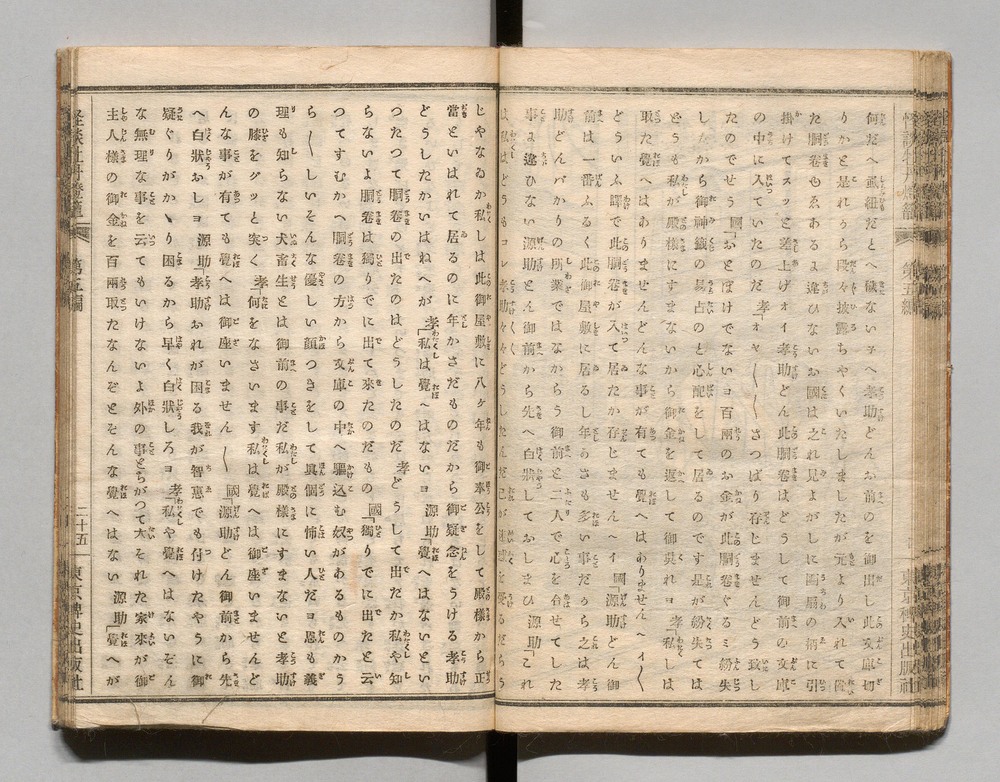 何だへ眞紐だとへ穢ないチへ孝助どんお前のを御出し此文庫切
りかと是れから段々披露ちやくいたしましたが元より入れて置
た胴巻ゆゑあるよ違ひないお國は之れ見よがしに團扇の柄に引
掛けてスッと差上げオイ孝助どん此胴巻はどうして御前の文庫
の中に入ていたのだ 孝「オヤ〳〵〳〵さつぱり存じません どう致し
たのでせう 國「おとぼけでないヨ百兩のお金が此胴巻ぐるミ紛失
したから御神籤の易占のと心配をして居るのです是が紛失ては
どうも私が殿様にすまないから御金を返して御呉れヨ 孝「私しは
取た覺へはありませんどんな事が有ても覺へはありませんヘイ〳〵
どういふ譯で此胴巻が入て居たか存じませんヘイ 國「源助どん御
前は一番ふるく此御屋敷に居るし年かさも多い事だから之は孝
助どんバかりの所業ではなからう御前と二人で心を合せてした
事よ違ひない源助どん御前から先へ白狀しておしまひ 源助「これ
は私はどうもコレ孝助々々どうしたんだ己が迷惑を受るだらう
じやなゐか私しは此御屋敷に八ヶ年も御奉公をして殿様から正
當といはれて居るのに年かさだものだから御疑念をうける 孝助
どうしたかいはねへが 孝「私は覺へはないヨ 源助「覺へはないとい
つたつて胴巻の出たのはどうしたのだ 孝「どうして出たか私や知
らないよ胴巻は獨りでに出て來たのだもの 國「獨りでに出たと云
つてすむかへ胴巻の方から文庫の中へ駆込む奴があるものかう
ら〳〵しいそんな優しい顔つきをして眞個に怖い人だヨ恩も義
理も知らない犬畜生とは御前の事だ私が殿様にすまないと孝助
の膝をグッと突く 孝「何をなさいます私は覺へは御座いませんど
んな事が有ても覺へは御座いません〳〵 國「源助どん御前から先
へ白狀おしヨ 源助「孝助おれが困る我が智惠でも付けたやうに御
疑ぐりがかゝり困るから早く白狀しろヨ 孝「私や覺へはないぞん
な無理な事を云てもいけないよ外の事とちがつて大それた家來が御
主人様の御金を百兩取たなんぞとそんな覺へはない 源助「覺へが
怪談牡丹燈籠
第五編
二十五
東京稗史出版社